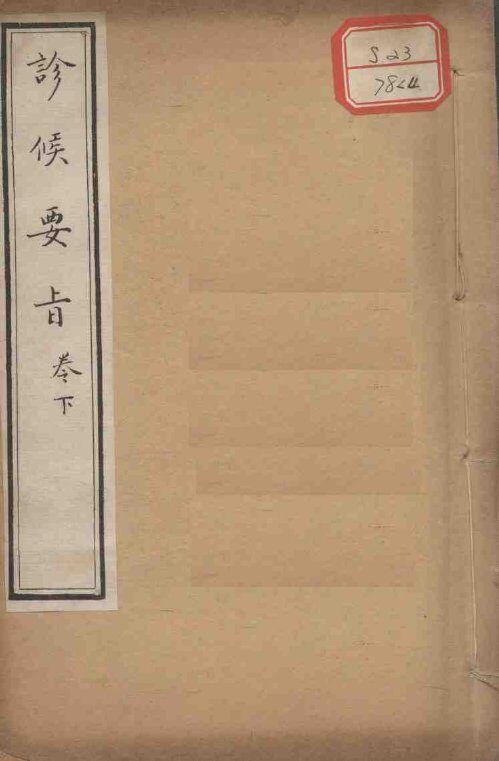 診候要旨
卷下
S23
7844